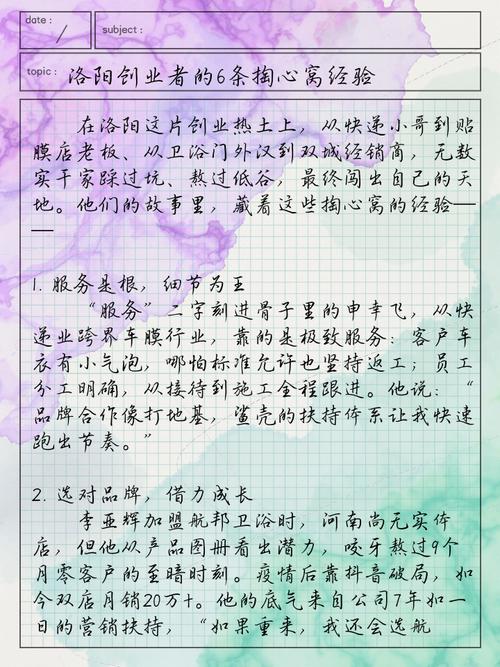 date :
subject :
topic : 洛阳创业者的6条掏心窝经验
在洛阳这片创业热土上，从快递小哥到贴
膜店老板、从卫浴门外汉到双城经销商，无数
实干家踩过坑、熬过低谷，最终闯出自己的天
地。他们的故事里，藏着这些掏心窝的经验—
—
1. 服务是根，细节为王
“服务”二字刻进骨子里的申幸飞，从快
递业跨界车膜行业，靠的是极致服务：客户车
衣有小气泡，哪怕标准允许也坚持返工；员工
分工明确，从接待到施工全程跟进。他说：“
品牌合作像打地基，鲨壳的扶持体系让我快速
跑出节奏。”
2. 选对品牌，借力成长
李亚辉加盟航邦卫浴时，河南尚无实体
店，但他从产品图册看出潜力，咬牙熬过9个
月零客户的至暗时刻。疫情后靠抖音破局，如
今双店月销20万+。他的底气来自公司7年如一
日的营销扶持，“如果重来，我还会选航